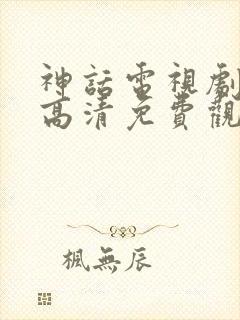 神話電視劇
高清免費觀
楓無辰